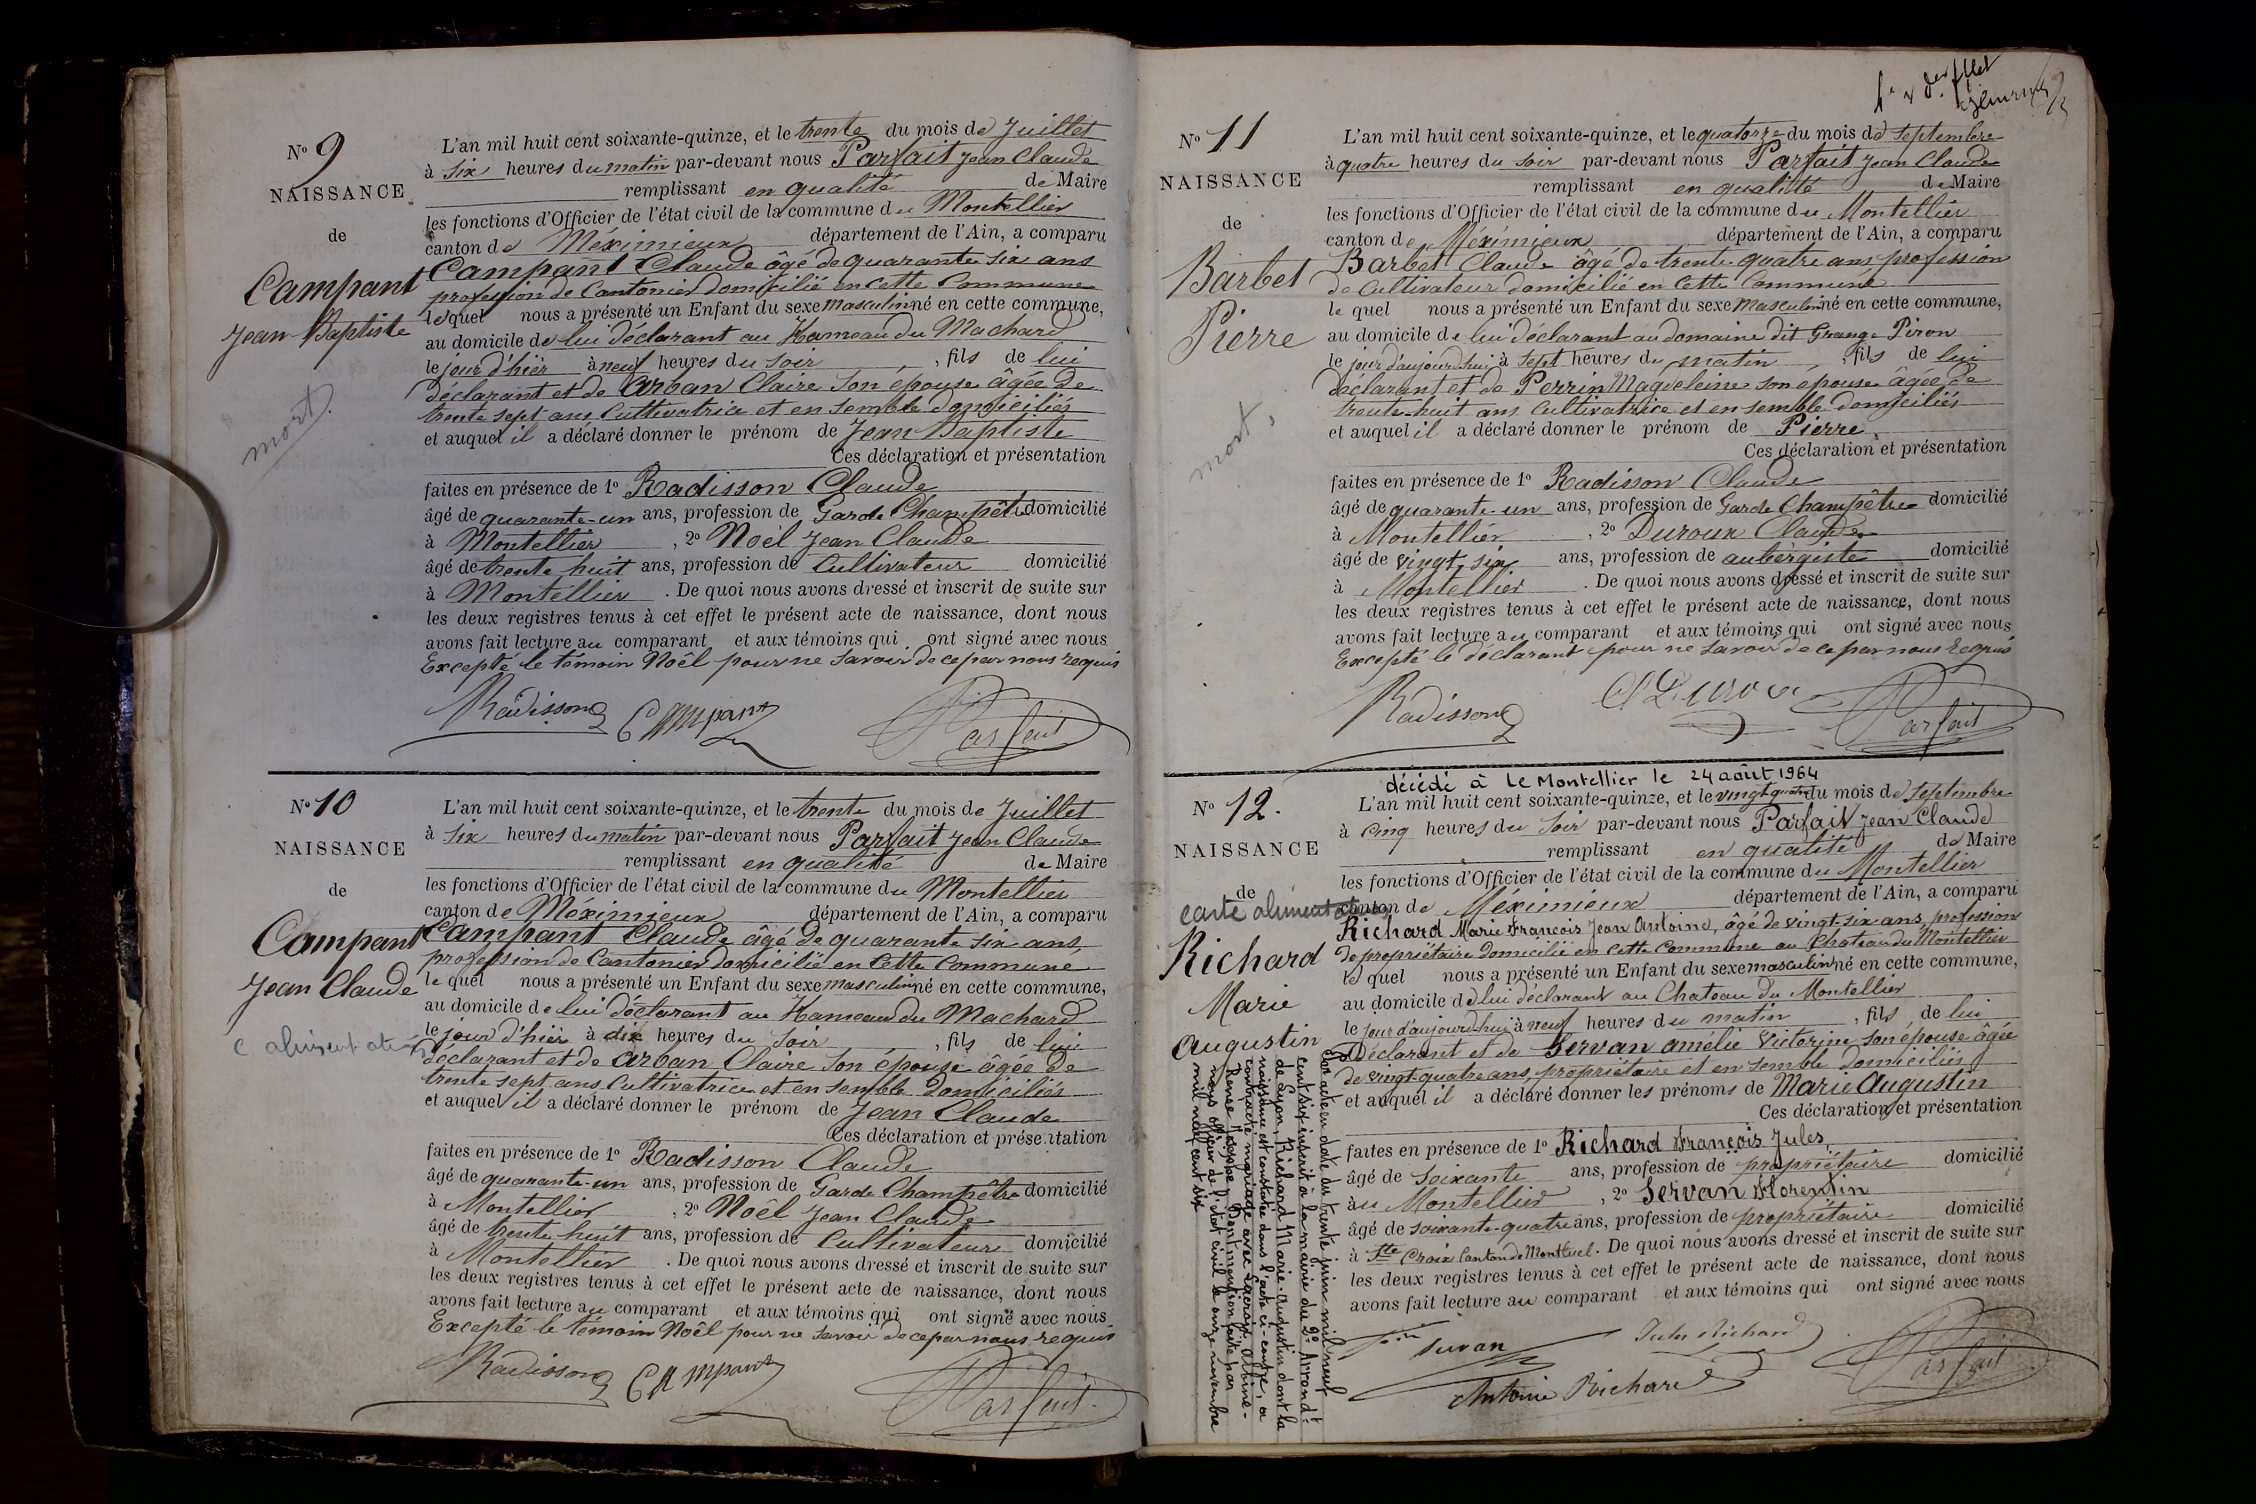 N° 9
NAISSANCE
de
Campant
Jean-Baptiste
mort.
L'an mil huit cent soixante-quinze, et le trente du mois de Juillet
à six heures du matin par-devant nous Parfait Jean Claude
remplissant en qualité de Maire
les fonctions d'Officier de l'état civil de la commune du Montellier
canton de Méximieux département de l'Ain, a comparu
Campant Claude âgé de quarante six ans
profession de Cantonier domicilié en cette Commune
lequel nous a présenté un Enfant du sexe masculin né en cette commune,
au domicile de lui déclarant au Hameau du Machard
le jour d'hier à neuf heures du soir, fils de lui
déclarant et de Arban Claire son épouse âgée de
trente sept ans Cultivatrice et en semble domiciliés
et auquel il a déclaré donner le prénom de Jean Baptiste
Ces déclaration et présentation
faites en présence de 1° Radisson Claude
âgé de quarante-un ans, profession de Garde Champêtre domicilié
à Montellier, 2° Noël Jean Claude
âgé de trente huit ans, profession de Cultivateur domicilié
à Montellier. De quoi nous avons dressé et inscrit de suite sur
les deux registres tenus à cet effet le présent acte de naissance, dont nous
avons fait lecture au comparant et aux témoins qui ont signé avec nous
Excepté le témoin Noël pour ne savoir de ce par nous requis
Radisson Campant Parfait
N° 10
NAISSANCE
de
Campant
Jean Claude
c alimentation
L'an mil huit cent soixante-quinze, et le trente du mois de Juillet
à six heures du matin par-devant nous Parfait Jean Claude
remplissant en qualité de Maire
les fonctions d'Officier de l'état civil de la commune du Montellier
canton de Méximieux département de l'Ain, a comparu
Campant Claude âgé de quarante six ans,
profession de Cantonier domicilié en cette Commune
lequel nous a présenté un Enfant du sexe masculin né en cette commune,
au domicile de lui déclarant au Hameau du Machard
le jour d'hier à dix heures du soir, fils de lui
déclarant et de Arban Claire son épouse âgée de
trente sept ans Cultivatrice et en semble domiciliés
et auquel il a déclaré donner le prénom de Jean Claude
Ces déclaration et présentation
faites en présence de 1° Radisson Claude
âgé de quarante-un ans, profession de Garde Champêtre domicilié
à Montellier, 2° Noël Jean Claude
âgé de trente huit ans, profession de Cultivateur domicilié
à Montellier. De quoi nous avons dressé et inscrit de suite sur
les deux registres tenus à cet effet le présent acte de naissance, dont nous
avons fait lecture au comparant et aux témoins qui ont signé avec nous
Excepté le témoin Noël pour ne savoir de ce par nous requis
Radisson Campant Parfait
N° 11
NAISSANCE
de
Barbet
Pierre
mort,
L'an mil huit cent soixante-quinze, et le quatorze du mois de Septembre
à quatre heures du soir par-devant nous Parfait Jean Claude
remplissant en qualité de Maire
les fonctions d'Officier de l'état civil de la commune du Montellier
canton de Méximieux département de l'Ain, a comparu
Barbet Claude âgé de trente quatre ans profession
de Cultivateur domicilié en cette Commune
lequel nous a présenté un Enfant du sexe masculin né en cette commune,
au domicile de lui déclarant au domaine dit Grange Piron
le jour d'aujourd'hui à sept heures du matin, fils de lui
déclarant et de Perrin Magdeleine son épouse âgée de
trente-huit ans Cultivatrice et en semble domiciliés
et auquel il a déclaré donner le prénom de Pierre
Ces déclaration et présentation
faites en présence de 1° Radisson Claude
âgé de quarante-un ans, profession de Garde Champêtre domicilié
à Montellier, 2° Duroux Claude
âgé de vingt six ans, profession de aubergiste domicilié
à Montellier. De quoi nous avons dressé et inscrit de suite sur
les deux registres tenus à cet effet le présent acte de naissance, dont nous
avons fait lecture au comparant et aux témoins qui ont signé avec nous
Excepté le déclarant pour ne savoir de ce par nous requis
Radisson Cl Duroux Parfait
décédé à Le Montellier le 24 août 1964
N° 12.
NAISSANCE
de
carte alimentation
Richard
Marie
Augustin
L'an mil huit cent soixante-quinze, et le vingt quatre du mois de Septembre
à cinq heures du soir par-devant nous Parfait Jean Claude
remplissant en qualité de Maire
les fonctions d'Officier de l'état civil de la commune du Montellier
canton de Méximieux département de l'Ain, a comparu
Richard Marie François Jean Antoine, âgé de vingt-six ans, profession
de propriétaire domicilié en cette Commune au Chateau du Montellier
lequel nous a présenté un Enfant du sexe masculin né en cette commune,
au domicile de lui déclarant au Chateau du Montellier
le jour d'aujourd'hui à neuf heures du matin, fils de lui
Déclarant et de Servan Amélie Victorine son épouse âgée
de vingt-quatre ans, propriétaire et en semble domiciliés
et auquel il a déclaré donner les prénoms de Marie Augustin
Ces déclaration et présentation
faites en présence de 1° Richard François Jules,
âgé de soixante ans, profession de propriétaire domicilié
au Montellier, 2° Servan Florentin
âgé de soixante-quatre ans, profession de propriétaire domicilié
à Ste Croix Canton de Montluel. De quoi nous avons dressé et inscrit de suite sur
les deux registres tenus à cet effet le présent acte de naissance, dont nous
avons fait lecture au comparant et aux témoins qui ont signé avec nous
Servan Jules Richard Parfait
Antoine Richard
Par acte en date du trente juin mil neuf
cent six inscrit à la mairie du 2e Arrondt
de Lyon, Richard Marie-Augustin dont la
naissance est constatée dans l'acte ci-contre, a
contracté mariage avec Albine-
Mention faite par
nous officier de l'état civil le onze novembre
mil neuf cent six